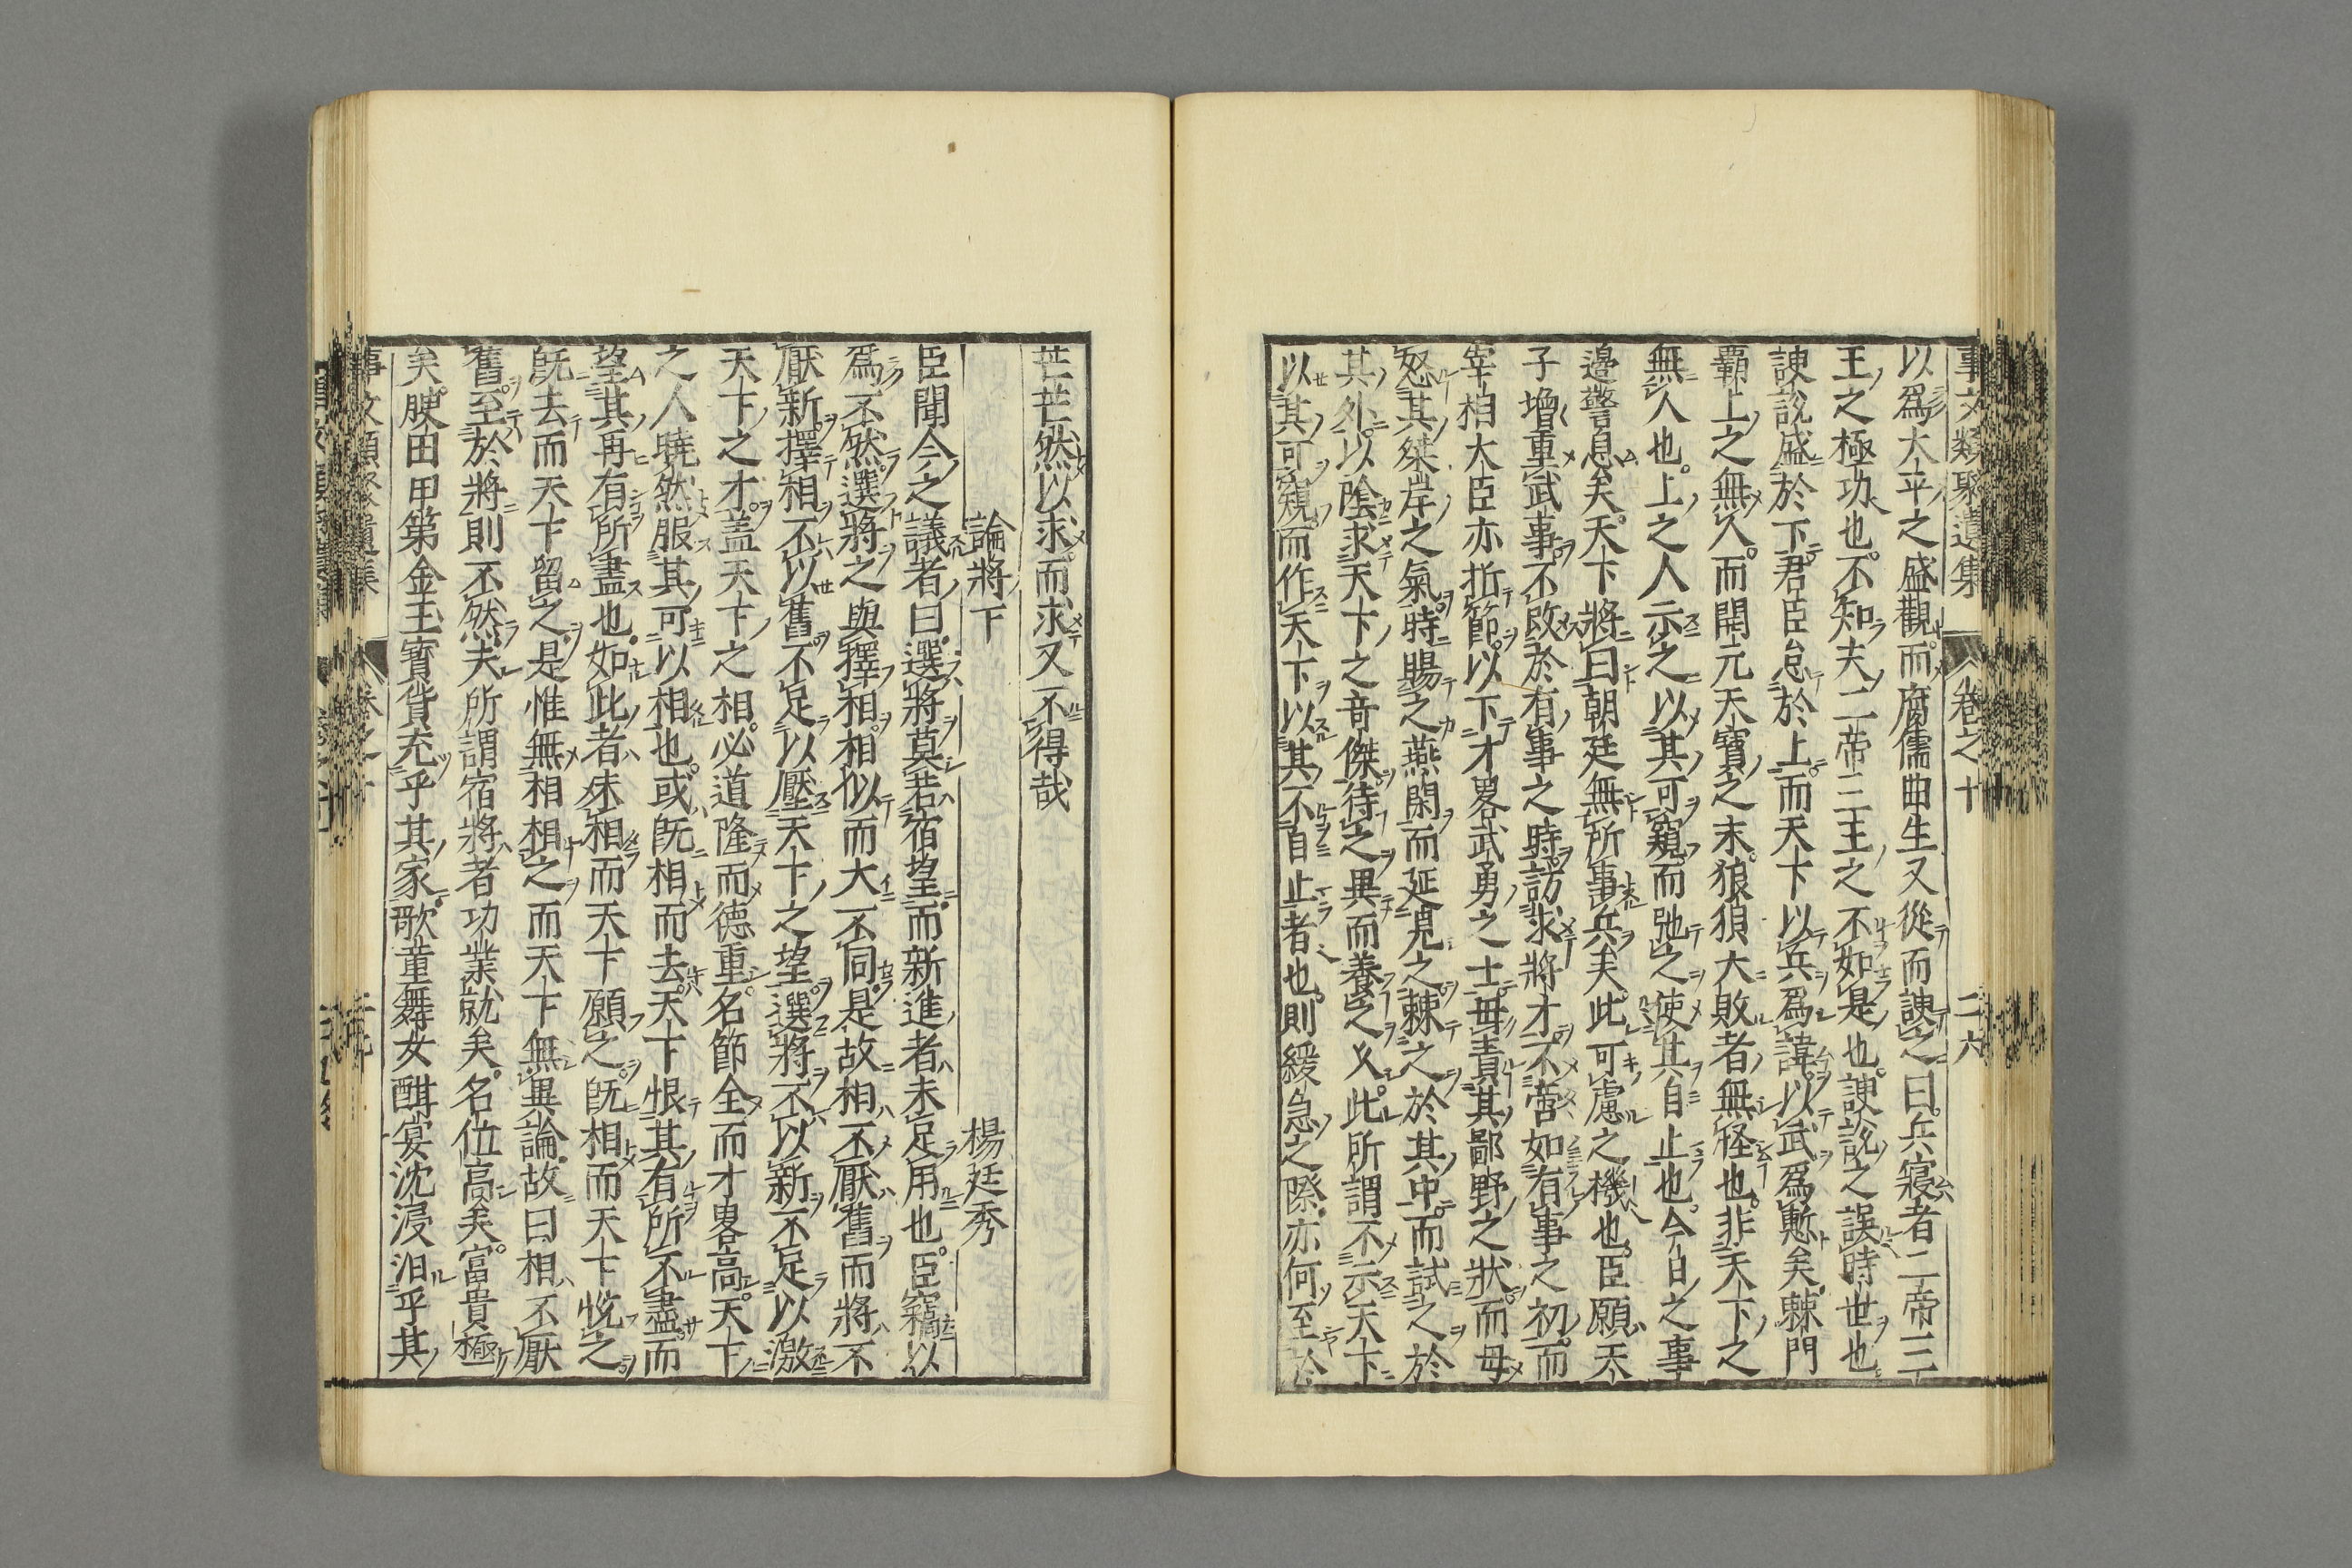 事文類聚遺集 卷之十 二六
以爲太平之盛觀而腐儒曲生又從而諛之曰兵寢者二帝三
王之極功也不知夫二帝三王之不如是也諛説之誤時世也
諛説盛於下君臣怠於上而天下以兵爲諱以武爲慙矣棘門
霸上之無人而開元天寶之末狼狽大敗者無怪也非天下之
無人也上之人示之以其可窺而弛之使其自止也今日之事
邊警息矣天下將曰朝廷無所事兵矣此可慮之機也臣願天
子增重武事不改於有事之時訪求將才不啻如有事之初而
宰相大臣亦折節以下才畧武勇之士毋責其鄙野之狀而毋
怒其桀岸之氣時賜之燕閑而延見之棘之於其中而試之於
其外以陰求天下之奇傑待之異而養之久此所謂不示天下
以其可窺而作天下以其不自止者也則緩急之際亦何至於
芒芒然以求而求又不得哉
論將下 楊廷秀
臣聞今之議者曰選將莫若宿望而新進者未足用也臣竊以
爲不然選將之與擇相相似而大不同是故相不厭舊而將不
厭新擇相不以舊不足以壓天下之望選將不以新不足以激
天下之才盖天下之相必道隆而德重名節全而才畧高天下
之人曉然服其可以相也或既相而去天下恨其有所不盡而
望其再有所盡也如此者未相而天下願之既相而天下悦之
既去而天下留之是惟無相相之而天下無異論故曰相不厭
舊至於將則不然夫所謂宿將者功業就矣名位高矣富貴極
矣腴田甲第金玉寳貨充乎其家歌童舞女酣宴沈浸汨乎其